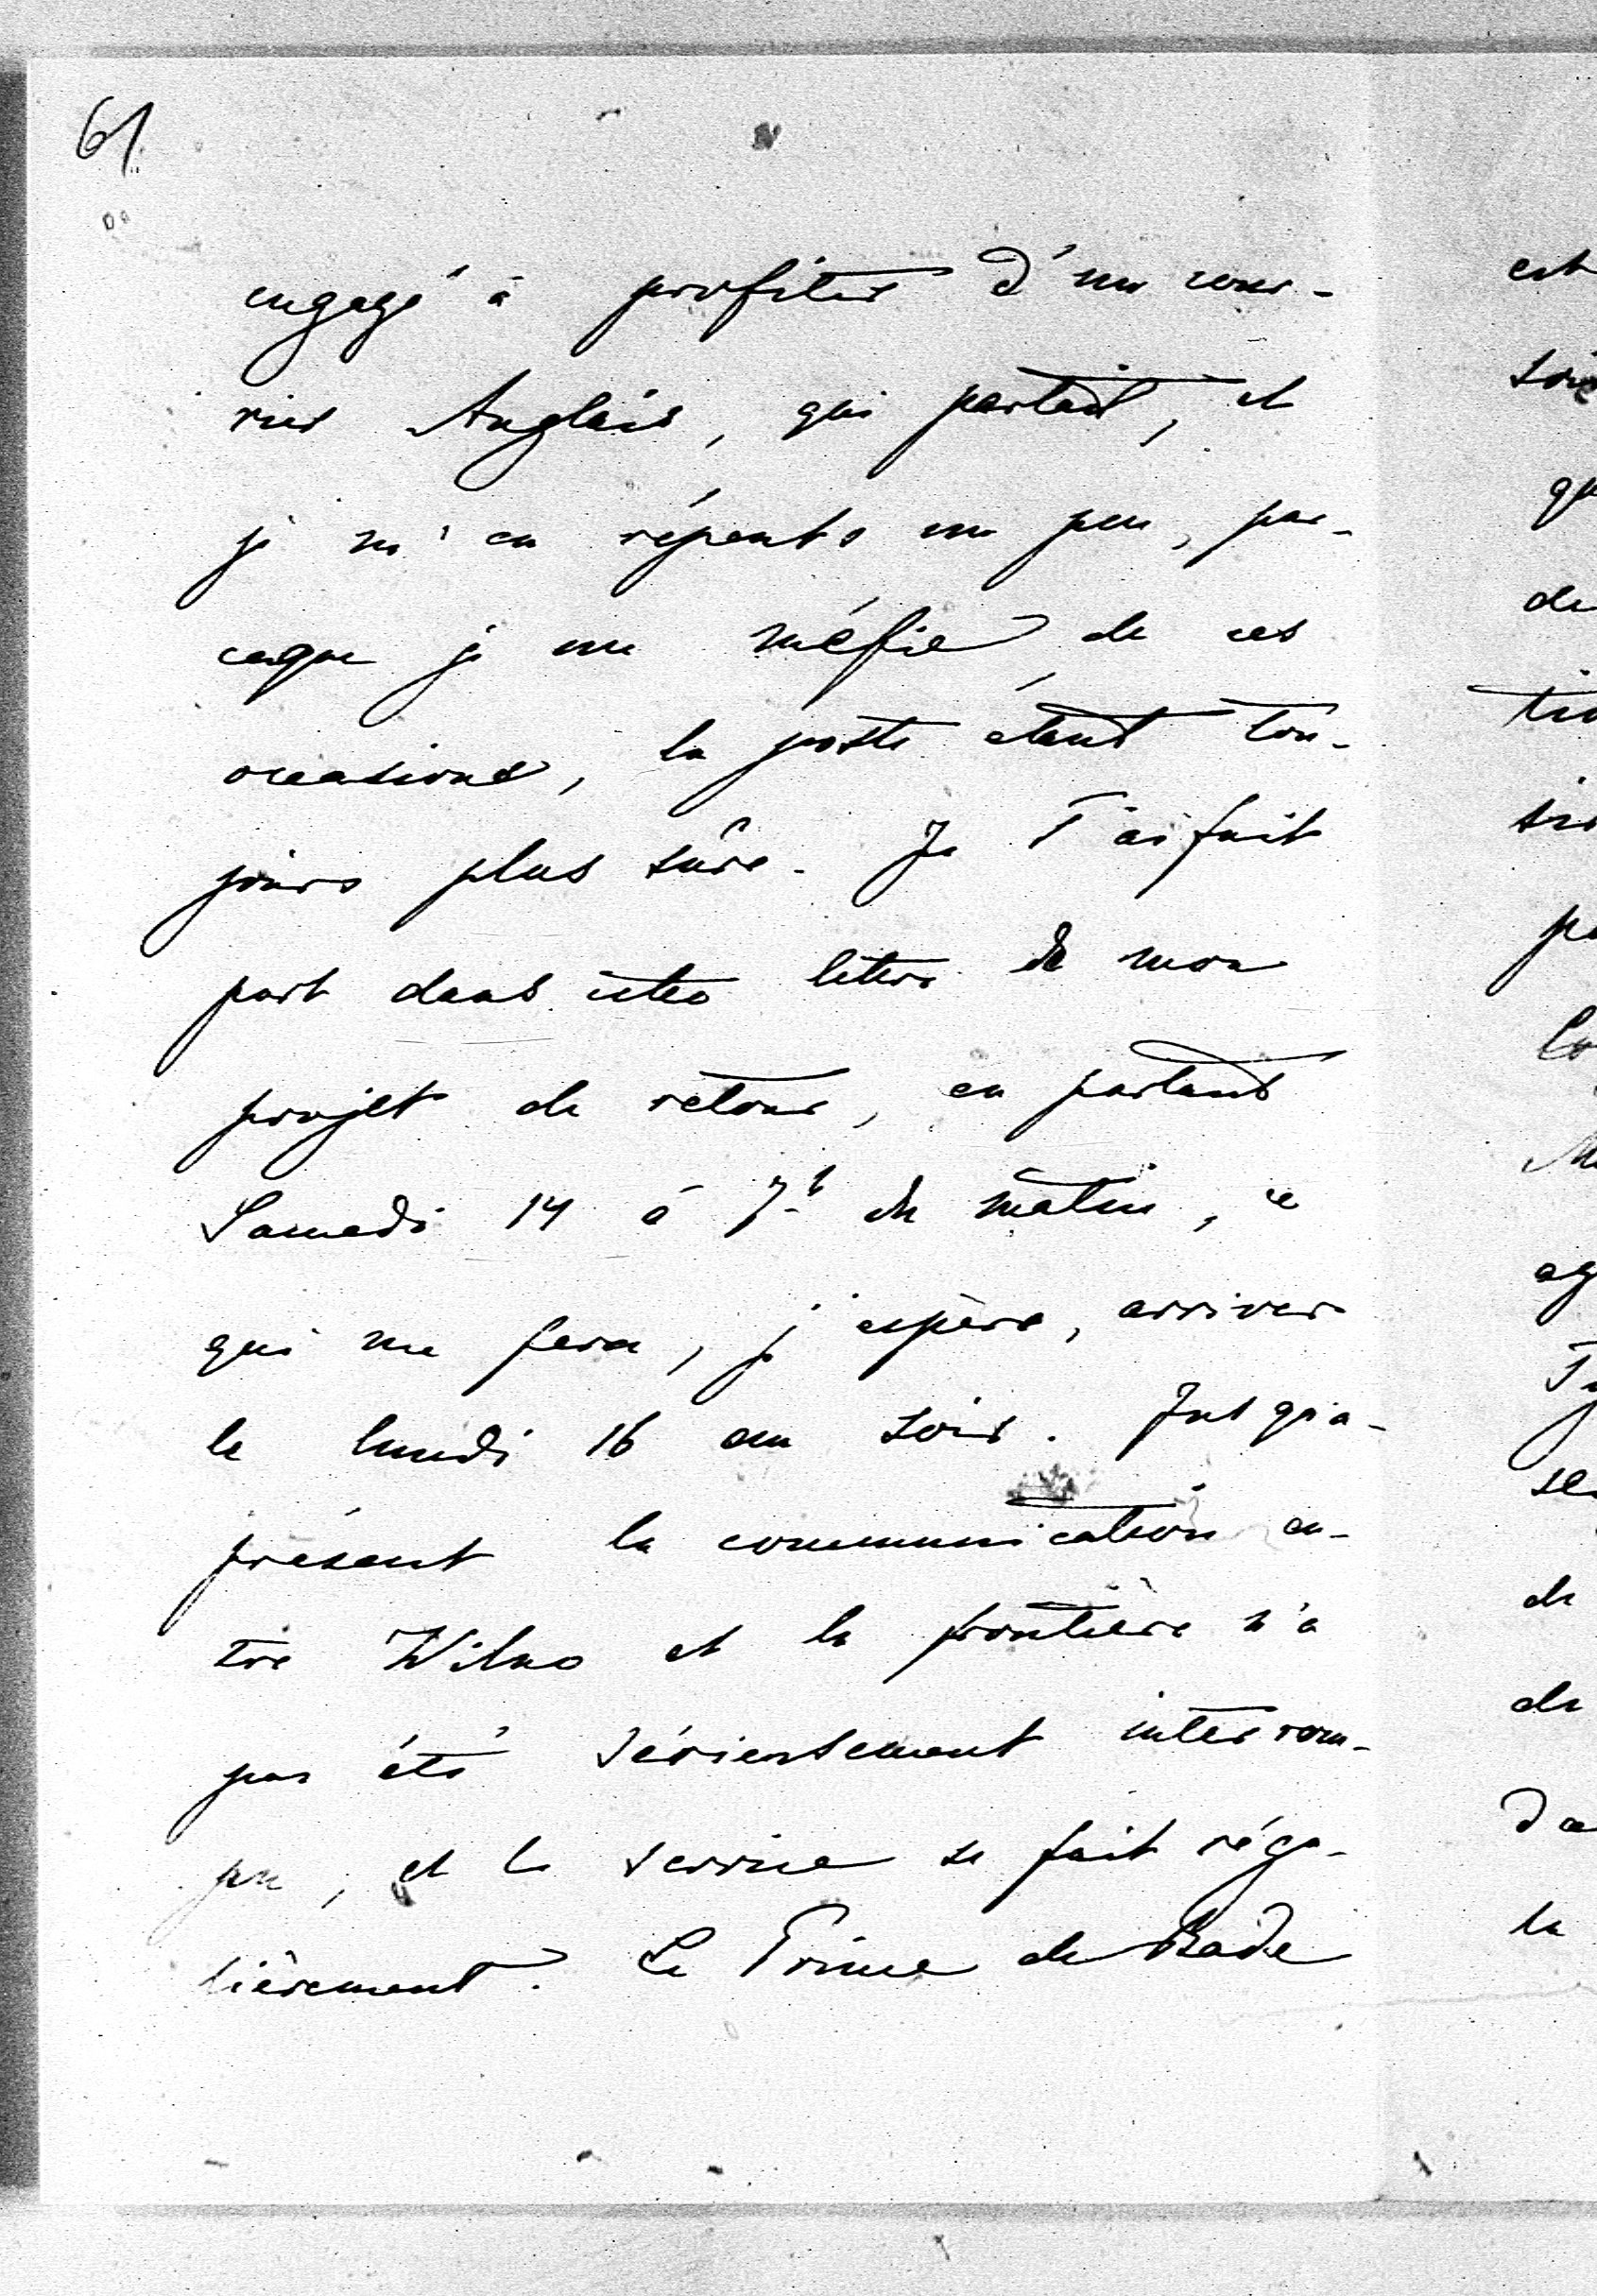 61
engagé à profiter d'un cour-
rier Anglais, qui partait, et
je m'en répents un peu, par-
ceque je me méfie de ces
occasions, la poste étant tou-
jours plus sûre. Je T'ai fait
part dans lettre de mon
projet de retour, en partant
Samedi 14 à 7h du matin, ce
qui me fera, j'espère, arriver
le lundi 16 au soir. Jusqu'a-
présent la communication en-
tre Wilno et la frontière n'a
pas été sérieusement interrom-
pu, et le service se fait régu-
lièrement. Le Prince de Bade
est
soi
qu
de
tio
po
Co
ag
se
de
de
da
la